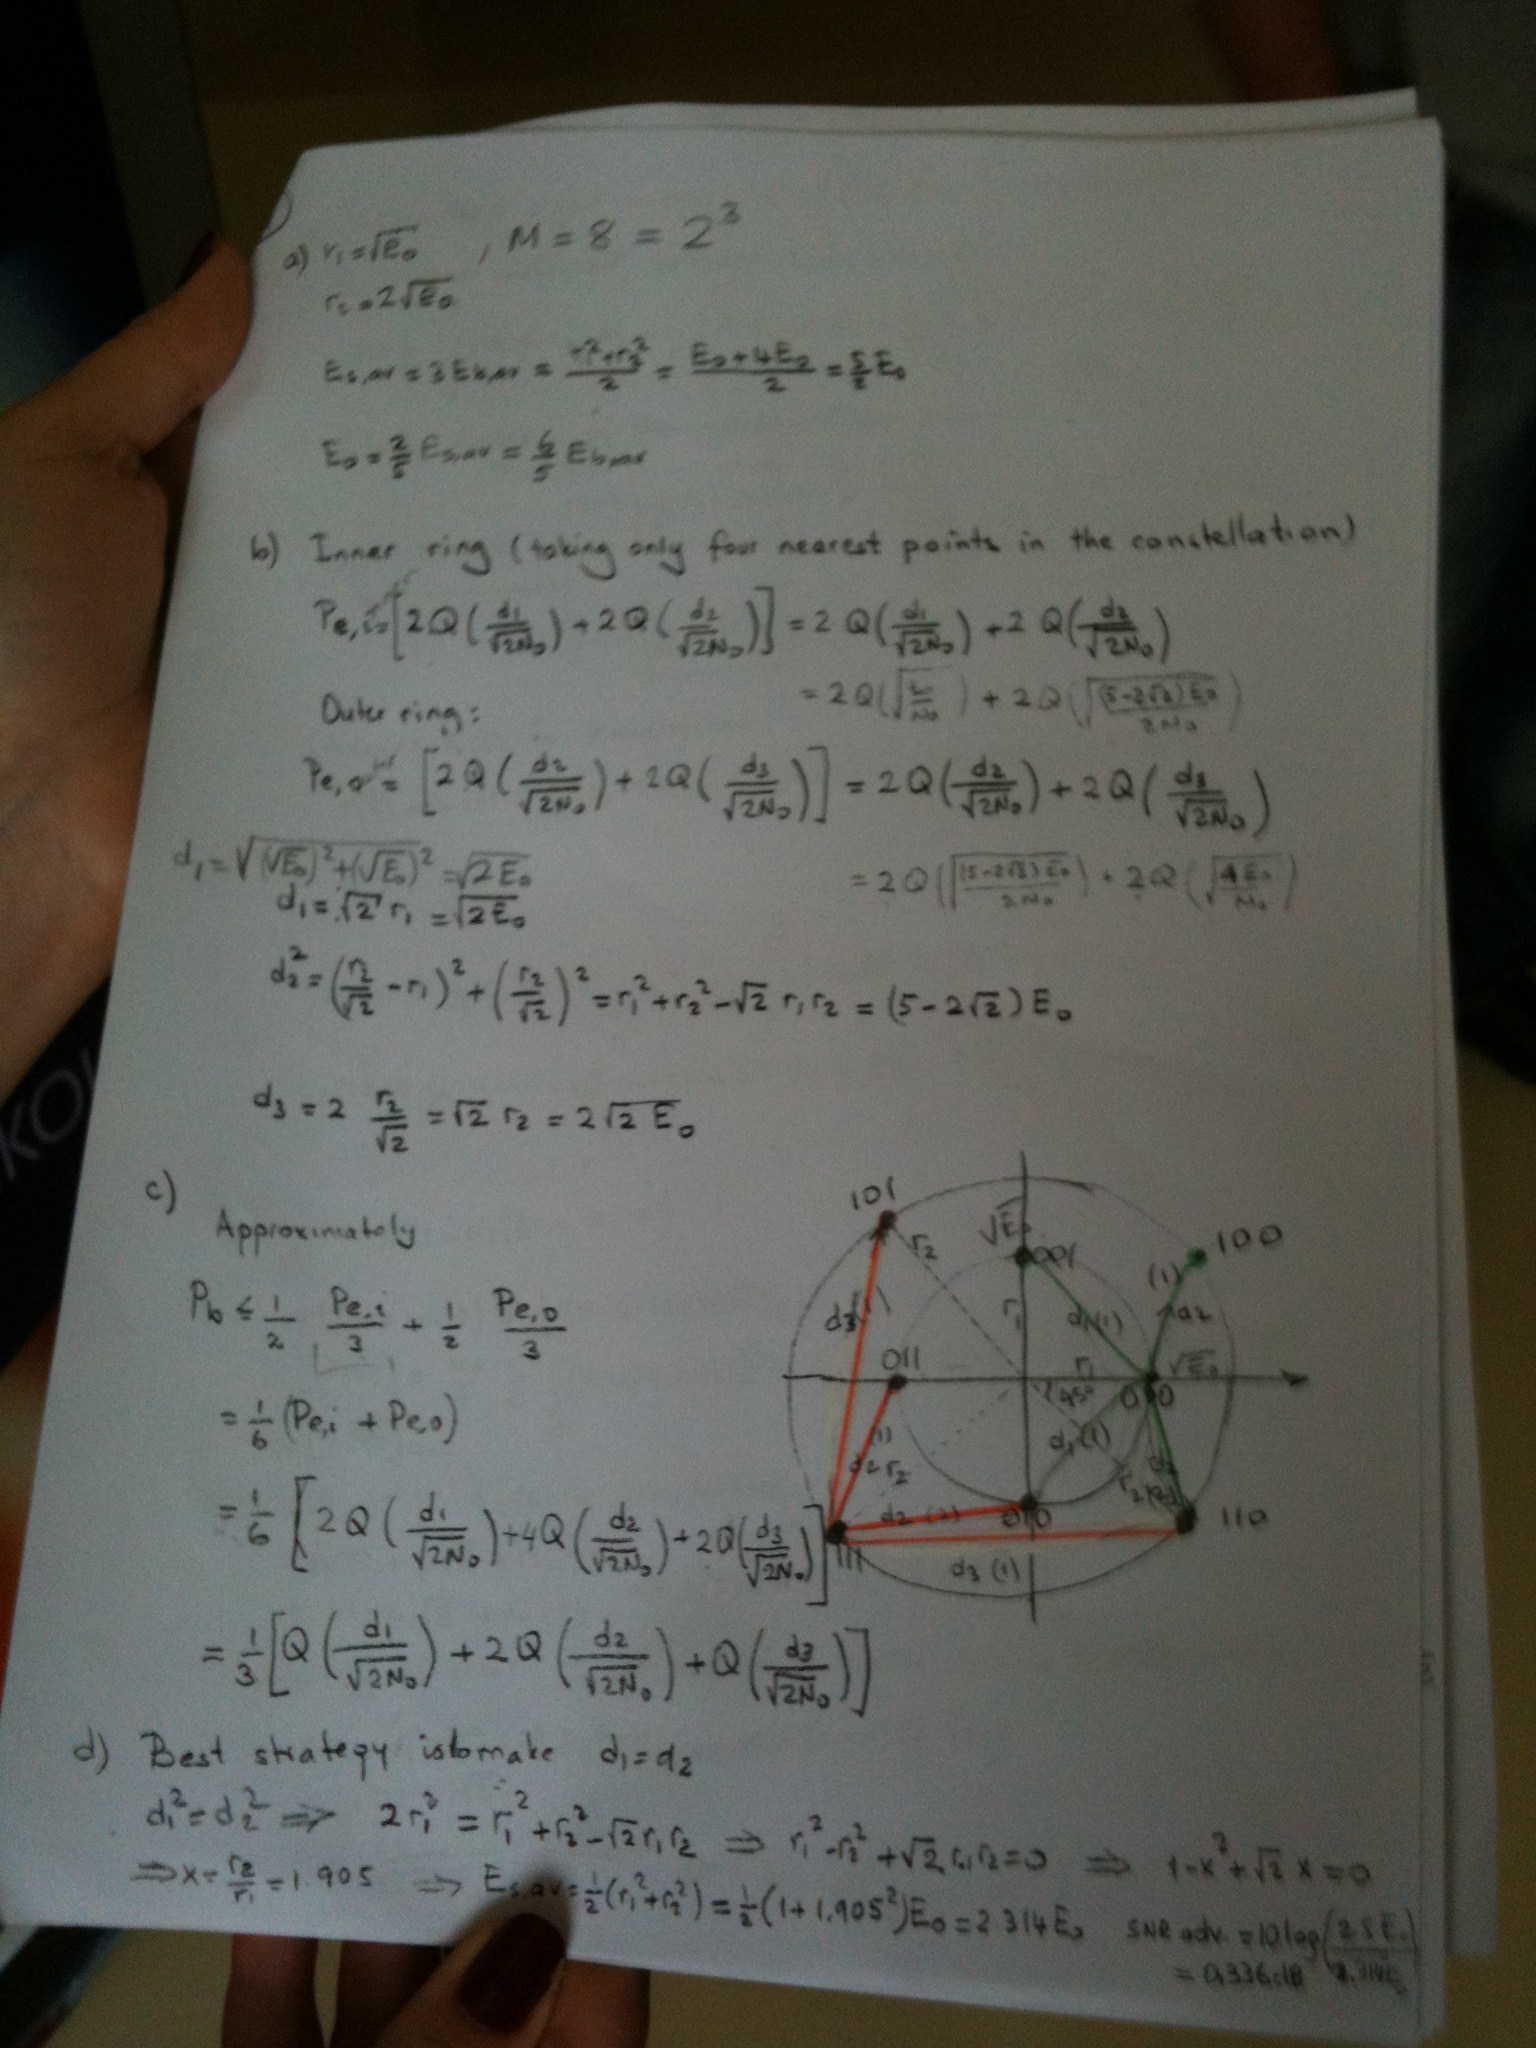 a) r₁ = √E₀ , M = 8 = 2³
r₂ = 2√E₀
Es,av = 3Eb,av = (r₁² + r₂²)/2 = (E₀ + 4E₀)/2 = 5/2 E₀
E₀ = 2/5 Es,av = 6/5 Eb,av
b) Inner ring (taking only four nearest points in the constellation)
Pe,i = [2Q(d₁/√2N₀) + 2Q(d₂/√2N₀)] = 2Q(d₁/√2N₀) + 2Q(d₂/√2N₀)
= 2Q(√(E₀/N₀)) + 2Q(√((5-2√2)E₀/2N₀))
Outer ring:
Pe,o = [2Q(d₂/√2N₀) + 2Q(d₃/√2N₀)] = 2Q(d₂/√2N₀) + 2Q(d₃/√2N₀)
= 2Q(√((5-2√2)E₀/2N₀)) + 2Q(√(4E₀/N₀))
d₁ = √((√E₀)² + (√E₀)²) = √2E₀
d₁ = √2 r₁ = √2E₀
d₂² = (r₂/√2 - r₁)² + (r₂/√2)² = r₁² + r₂² - √2 r₁r₂ = (5-2√2)E₀
d₃ = 2 r₂/√2 = √2 r₂ = 2√2E₀
c) Approximately
Pb ≤ 1/2 Pe,i/3 + 1/2 Pe,o/3
= 1/6 (Pe,i + Pe,o)
= 1/6 [2Q(d₁/√2N₀) + 4Q(d₂/√2N₀) + 2Q(d₃/√2N₀)]
= 1/3 [Q(d₁/√2N₀) + 2Q(d₂/√2N₀) + Q(d₃/√2N₀)]
101
√E₀
001
100
r₂
(1)
d₃(1)
r₁
d₁(1)
d₂
011
r₁
√E₀
45°
000
(1)
d₁(1)
d₂
d₂ r₂
r₂
d₂ (2)
010
110
111
d₃ (1)
d) Best strategy is to make d₁ = d₂
d₁² = d₂² ⇒ 2r₁² = r₁² + r₂² - √2 r₁r₂ ⇒ r₁² - r₂² + √2 r₁r₂ = 0 ⇒ 1 - x² + √2 x = 0
⇒ x = r₂/r₁ = 1.905 ⇒ Es,av = 1/2(r₁² + r₂²) = 1/2(1 + 1.905²)E₀ = 2.314E₀ SNR adv. = 10log(2.5E₀/2.314E₀)
= 0.336 dB
KOL